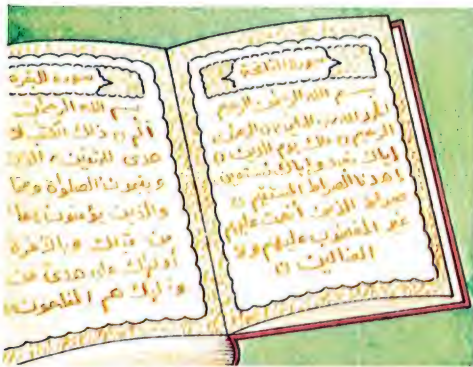 سورة الفاتحة
بسم الله الرحمن الرحيم
الحمد لله رب العالمين الرحمن
الرحيم ملك يوم الدين
إياك نعبد وإياك نستعين
اهدنا الصراط المستقيم
صراط الذين أنعمت عليهم
غير المغضوب عليهم ولا
الضالين
سورة البقرة
بسم الله الرحمن
الم ذلك الكتب لا
هدى للمتقين الذين
ويقيمون الصلوة ومما
والذين يؤمنون بما
من قبلك وبالآخرة
أولئك على هدى من
وأولئك هم المفلحون